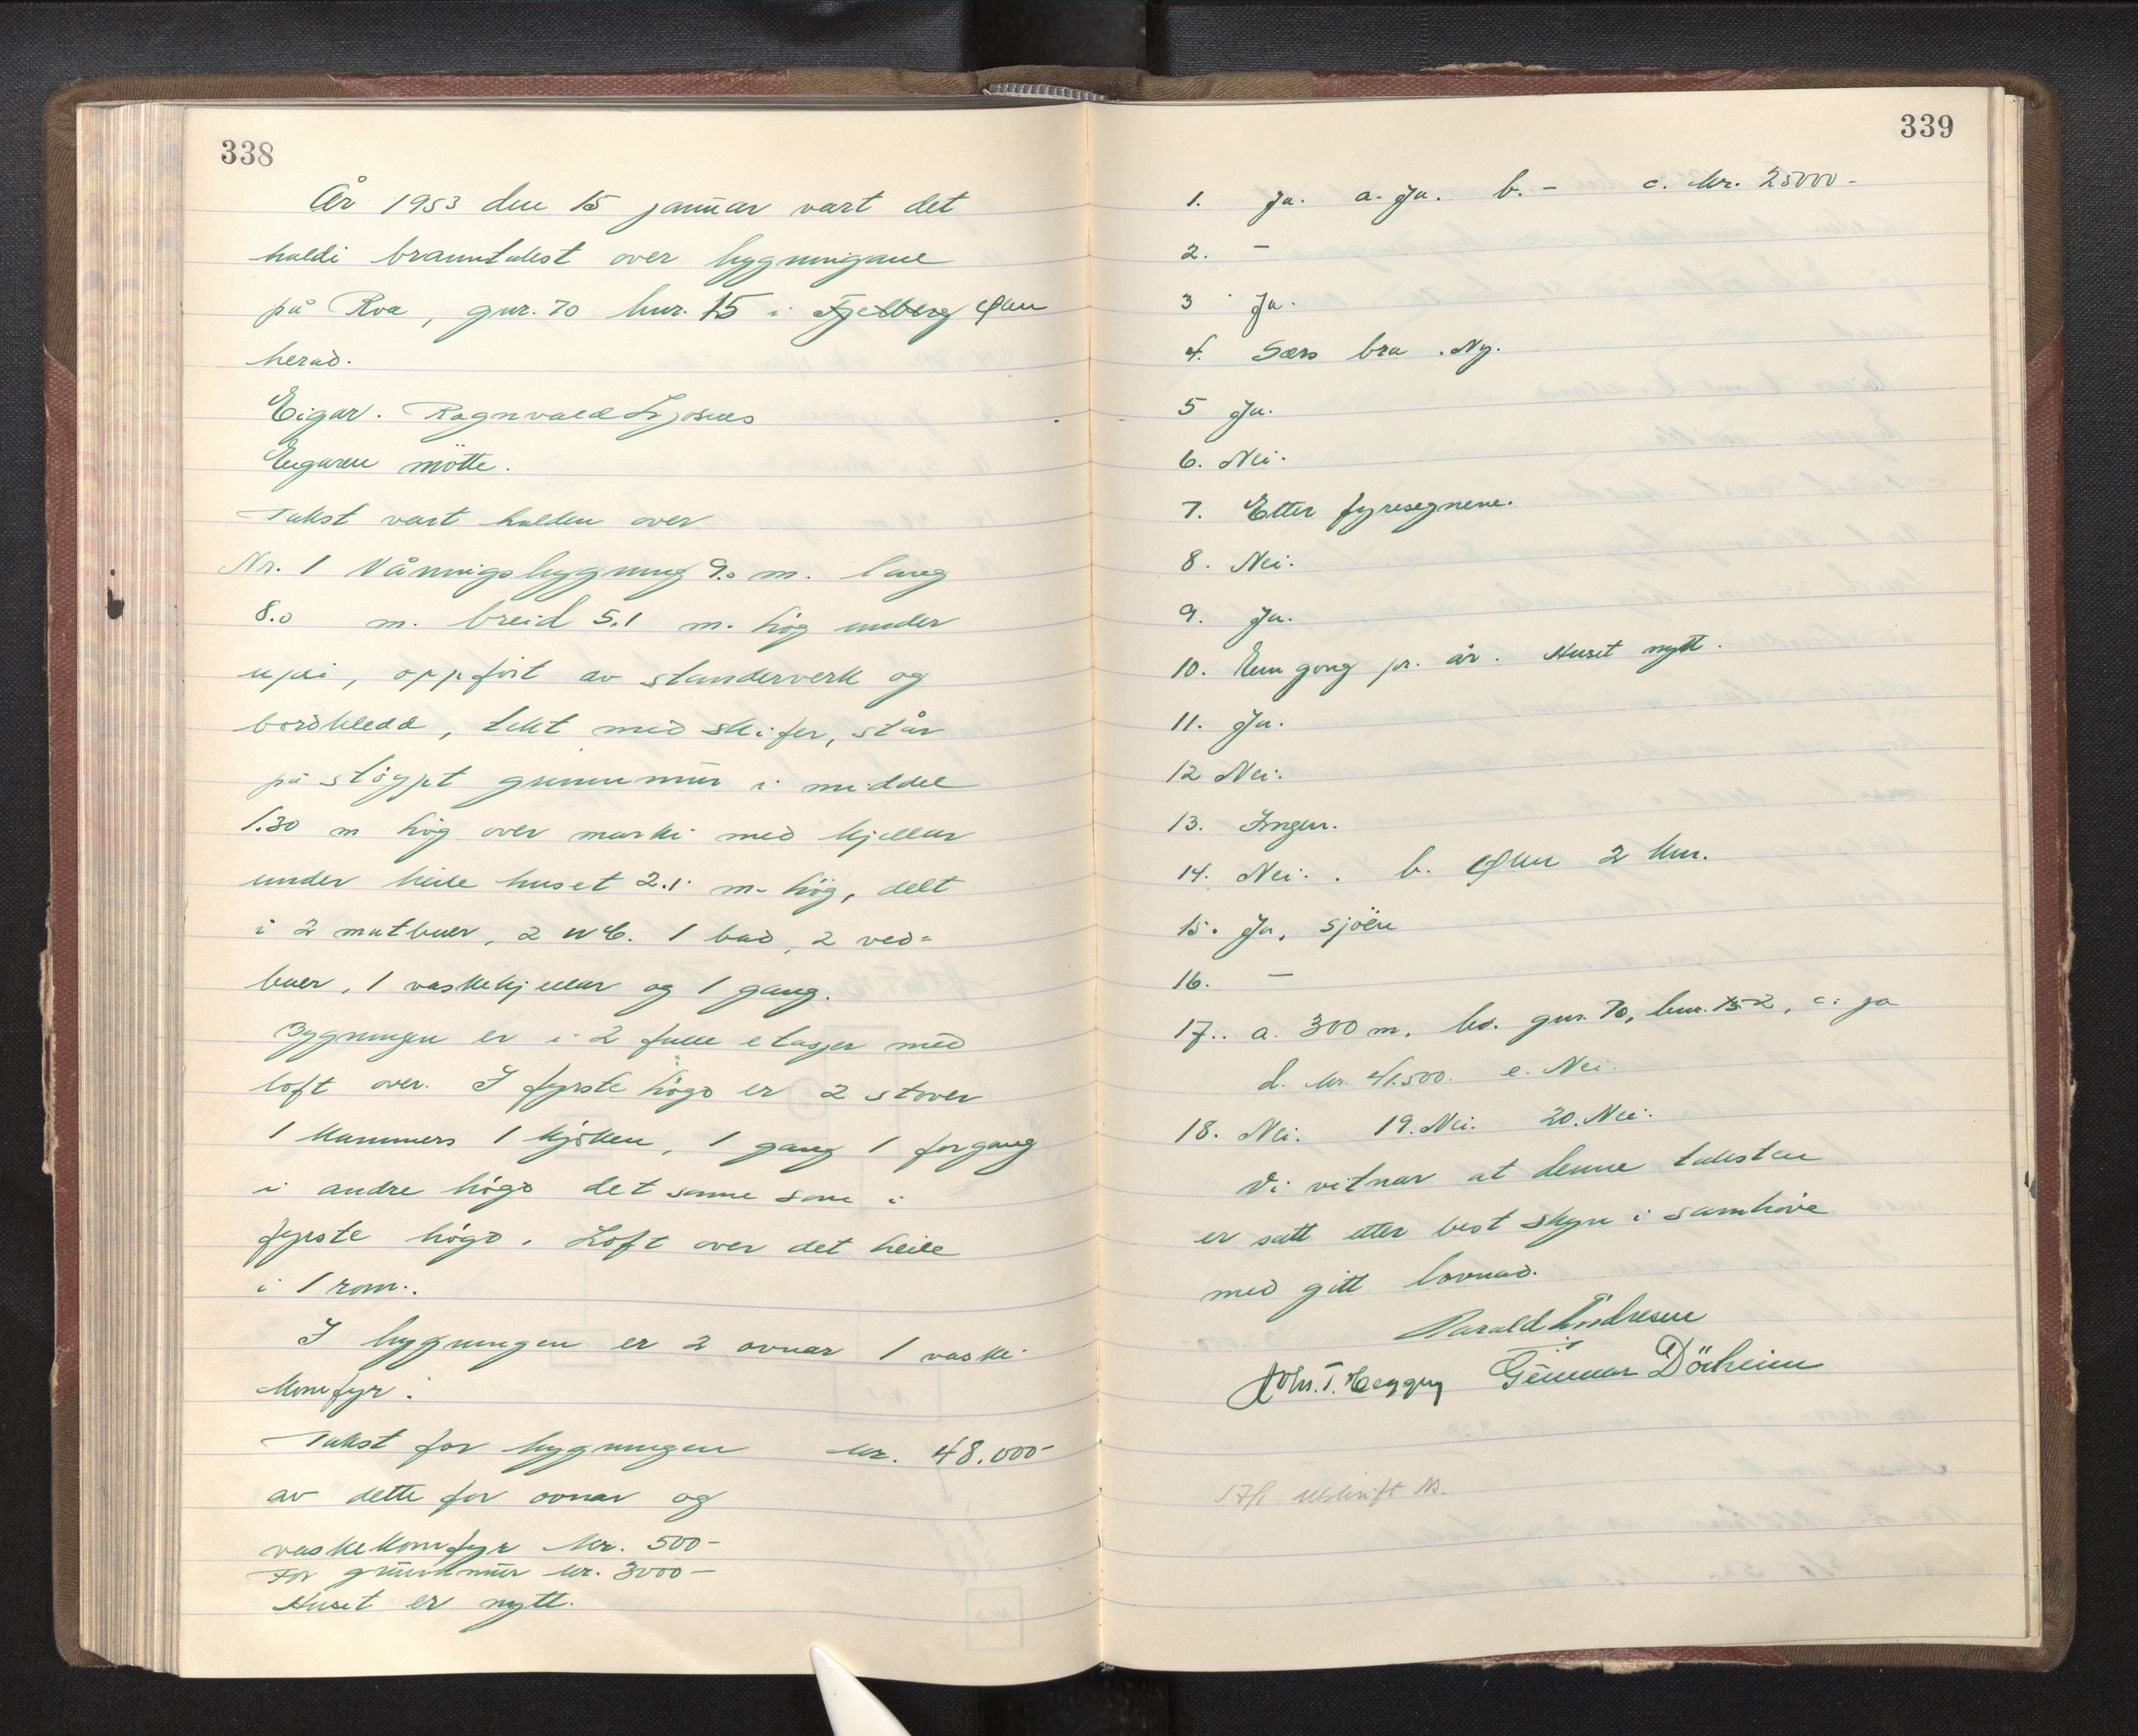 338
År 1953 den 15 januar vart det
haldi branntakst over bygningane
på Roa, gnr. 70 bnr. 15 i Fjelberg Ølen
herad.
Eigar. Ragnvald
Eigaren mötte.
Takst vart halden over
Nr. 1 Våningsbygning 9.0 m. lang
8.0 m. breid 5.1 m. høg under
upsi, oppført av standerverk og
bordkledd, tekt med skifer, står
på støypt grunnmur i middel
1.30 m høg over marki med kjellar
under heile huset 2.1 m. høg, delt
i 2 matbuer, 2 WC. 1 bad, 2 ved=
buer, 1 vaskekjellar og 1 gang.
Bygningen er i 2 fulle etasjer med
loft over. I fyrste høgd er 2 stover
1 kammers 1 kjøken, 1 gang 1 forgang
i andre høgd det same som i
fyrste høgd. Loft over det heile
i 1 rom.
I bygningen er 2 ovnar 1 vaske
komfyr.
Takst for bygningen kr. 48.000-
av dette for ovnar og
vaskekomfyr kr. 500-
For grunnmur kr. 3000-
Huset er nytt.
339
1. Ja. a. Ja. b. - c. kr. 25000-
2. -
3 Ja.
4. Særs bra. Ny.
5 Ja.
6. Nei.
7. Etter fyresegnene.
8. Nei.
9. Ja.
10. Ein gong pr. år. Huset nytt.
11. Ja.
12 Nei.
13. Ingen.
14. Nei. b. Ølen 2 km.
15. Ja, sjöen
16. -
17.. a. 300 m. b. gnr. 70, bnr. 15 2, c. ja
d. kr. 41.500. e. Nei.
18. Nei. 19. Nei. 20. Nei.
Vi vitnar at denne taksten
er sett etter best skyn i samhøve
med gitt lovnad.
Harald Endresen
Gunnar Dörheim
17/1 utskrift